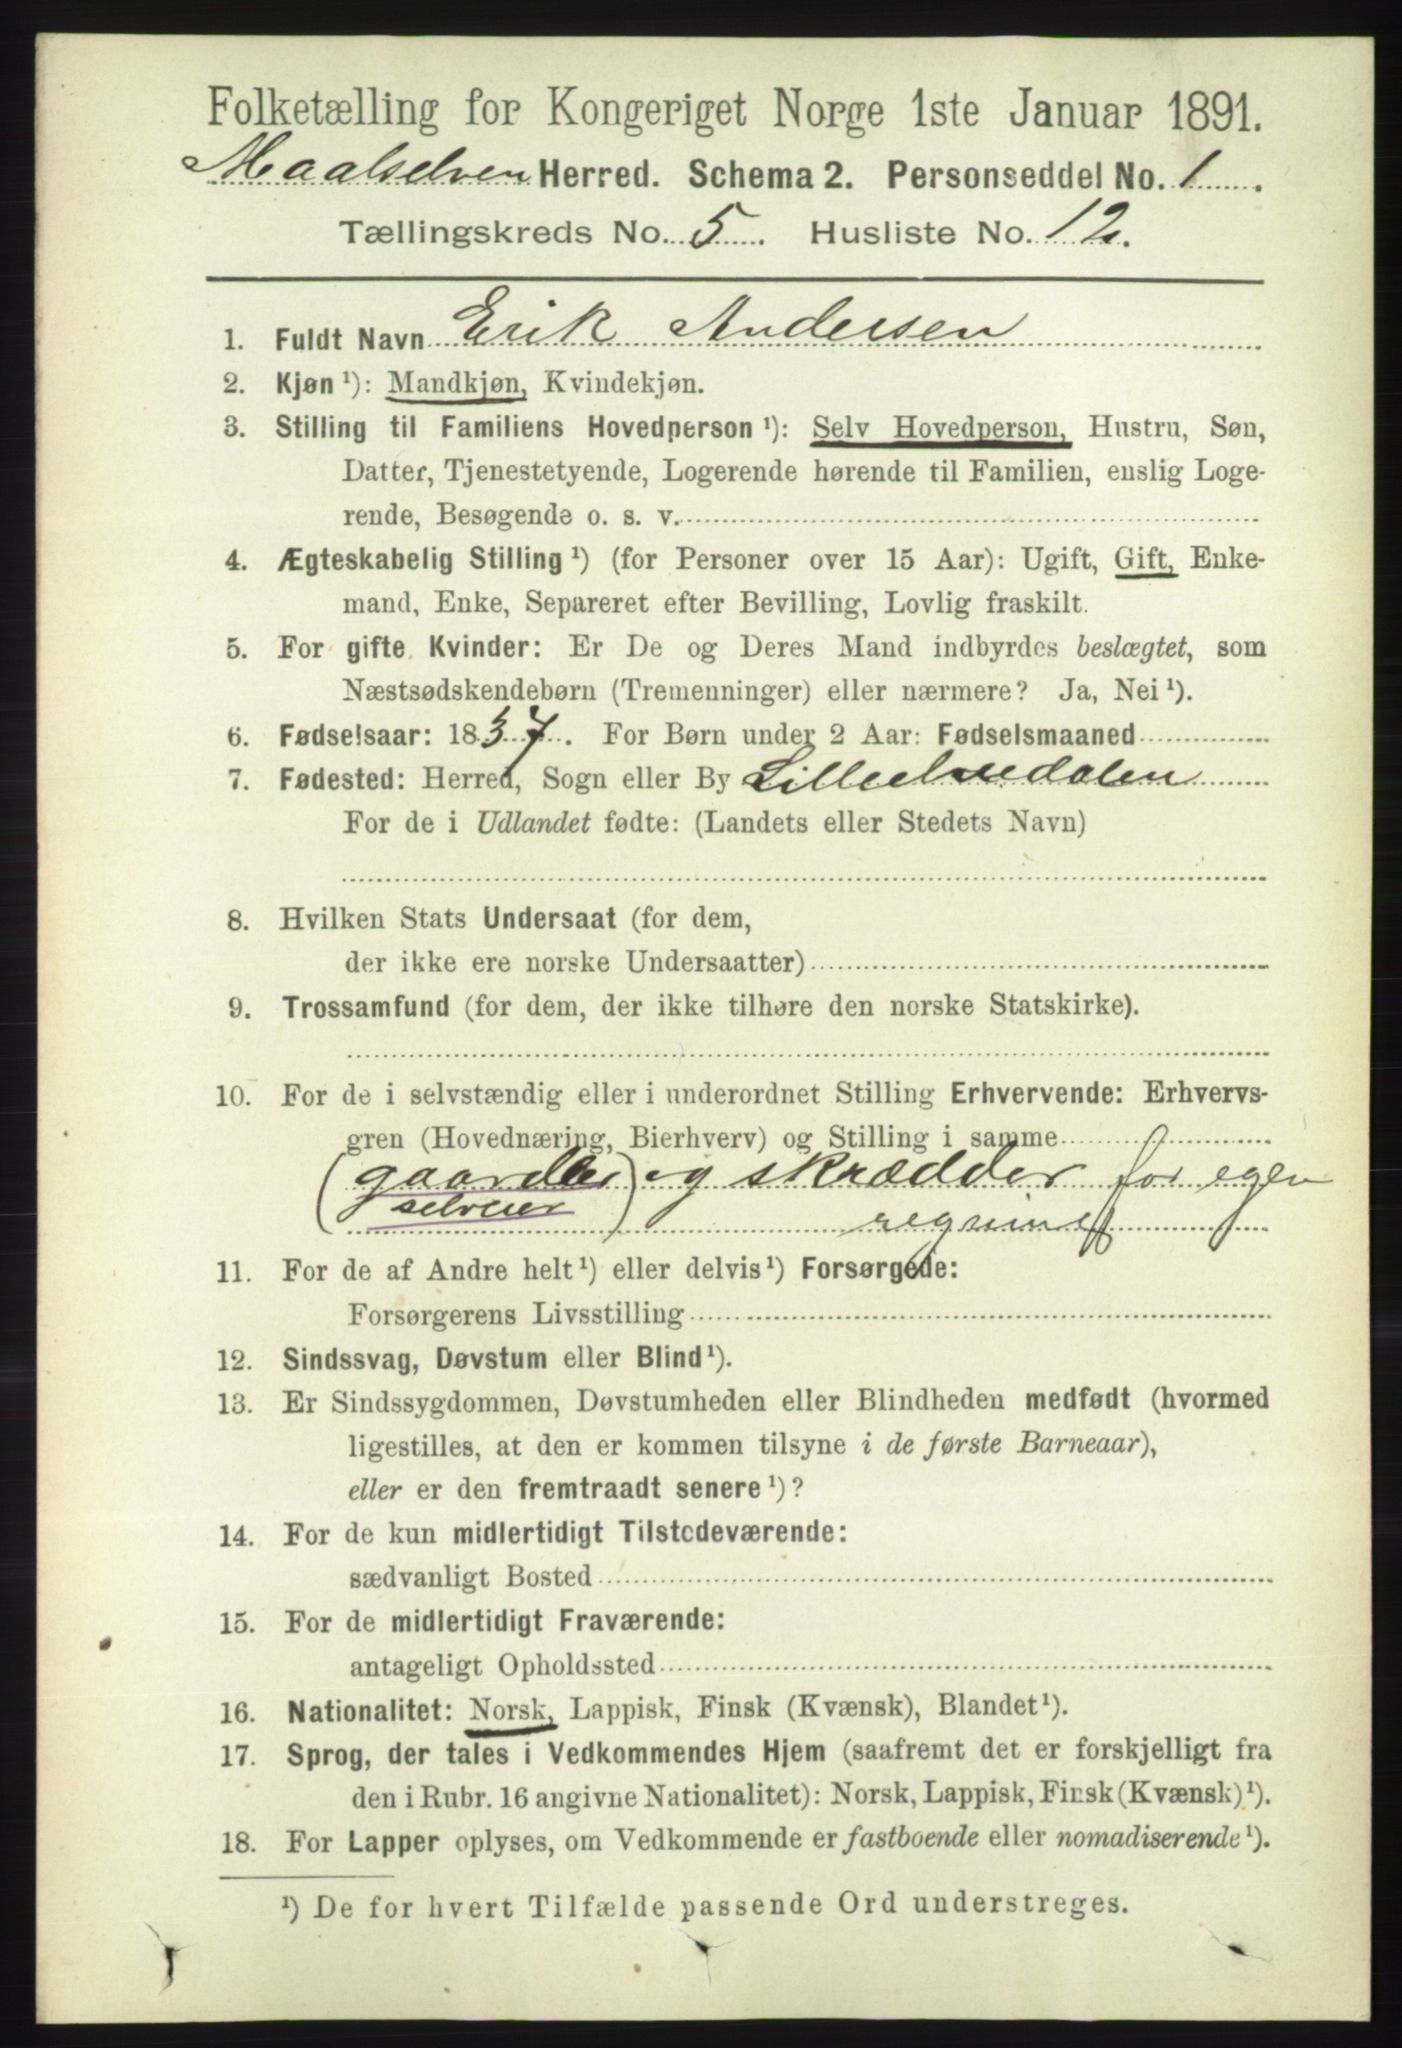 Folketælling for Kongeriget Norge 1ste Januar 1891.
Maalselven Herred. Schema 2. Personseddel No. 1
Tællingskreds No. 5. Husliste No. 12.
1. Fuldt Navn Erik Andersen
2. Kjøn ¹): Mandkjøn, Kvindekjøn.
3. Stilling til Familiens Hovedperson ¹): Selv Hovedperson, Hustru, Søn,
Datter, Tjenestetyende, Logerende hørende til Familien, enslig Loge-
rende, Besøgende o. s. v.
4. Ægteskabelig Stilling ¹) (for Personer over 15 Aar): Ugift, Gift, Enke-
mand, Enke, Separeret efter Bevilling, Lovlig fraskilt.
5. For gifte Kvinder: Er De og Deres Mand indbyrdes beslægtet, som
Næstsødskendebørn (Tremenninger) eller nærmere? Ja, Nei ¹).
6. Fødselsaar: 1837. For Børn under 2 Aar: Fødselsmaaned
7. Fødested: Herred, Sogn eller By Lilleelvedalen
For de i Udlandet fødte: (Landets eller Stedets Navn)
8. Hvilken Stats Undersaat (for dem,
der ikke ere norske Undersaatter)
9. Trossamfund (for dem, der ikke tilhøre den norske Statskirke).
10. For de i selvstændig eller i underordnet Stilling Erhvervende: Erhvervs-
gren (Hovednæring, Bierhverv) og Stilling i samme
(gaardbr) og skrædder for egen
selveier regning
11. For de af Andre helt ¹) eller delvis ¹) Forsørgede:
Forsørgerens Livsstilling
12. Sindssvag, Døvstum eller Blind ¹).
13. Er Sindssygdommen, Døvstumheden eller Blindheden medfødt (hvormed
ligestilles, at den er kommen tilsyne i de første Barneaar),
eller er den fremtraadt senere ¹)?
14. For de kun midlertidigt Tilstedeværende:
sædvanligt Bosted
15. For de midlertidigt Fraværende:
antageligt Opholdssted
16. Nationalitet: Norsk, Lappisk, Finsk (Kvænsk), Blandet ¹).
17. Sprog, der tales i Vedkommendes Hjem (saafremt det er forskjelligt fra
den i Rubr. 16 angivne Nationalitet): Norsk, Lappisk, Finsk (Kvænsk) ¹).
18. For Lapper oplyses, om Vedkommende er fastboende eller nomadiserende ¹).
¹) De for hvert Tilfælde passende Ord understreges.